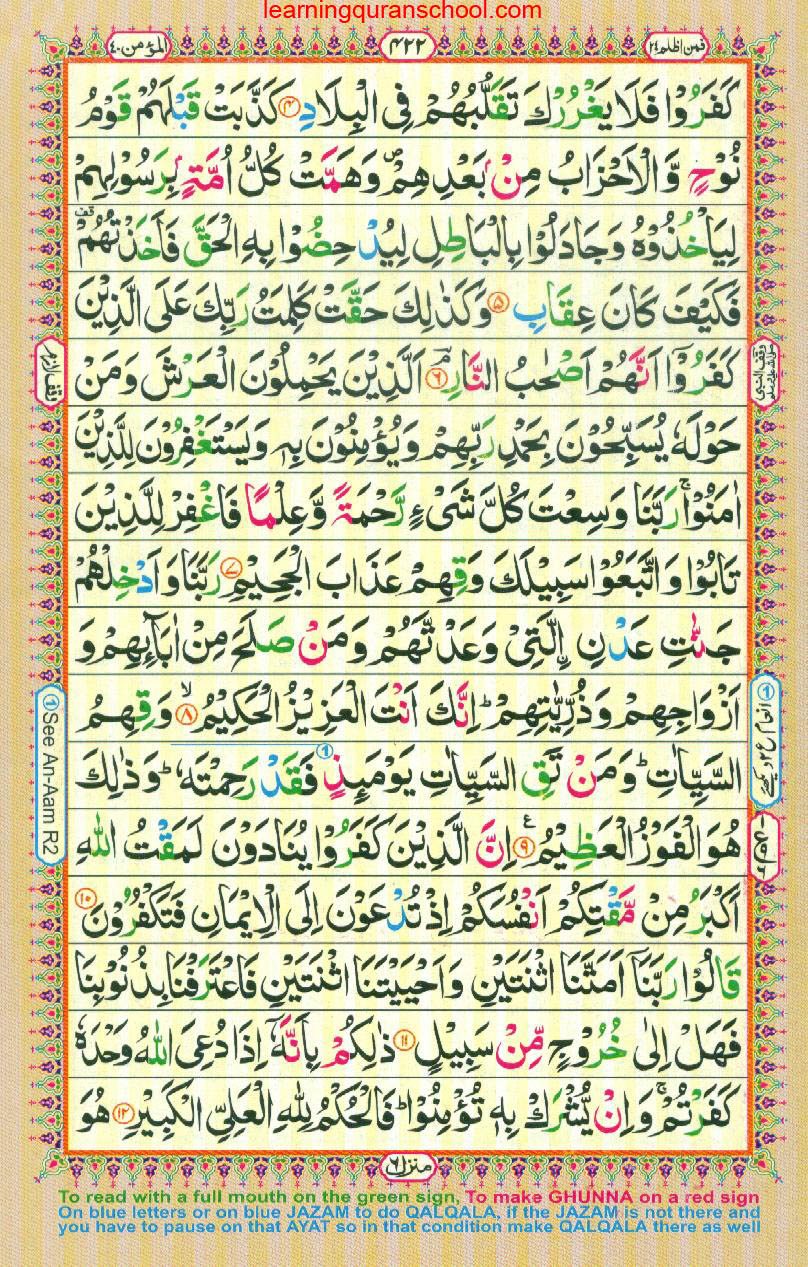 learningquranschool.com
المؤمن ٤٠
٤٢٢
فمن اظلم ٢٤
كَفَرُوْا فَلَا يَغْرُرْكَ تَقَلُّبُهُمْ فِى الْبِلَادِ ۝۴ كَذَّبَتْ قَبْلَهُمْ قَوْمُ
نُوْحٍ وَّ الْاَحْزَابُ مِنْۢ بَعْدِهِمْ ۪ وَهَمَّتْ كُلُّ اُمَّةٍۭ بِرَسُوْلِهِمْ
لِيَاْخُذُوْهُ وَجَادَلُوْا بِالْبَاطِلِ لِيُدْحِضُوْا بِهِ الْحَقَّ فَاَخَذْتُهُمْ
فَكَيْفَ كَانَ عِقَابِ ۝۵ وَكَذٰلِكَ حَقَّتْ كَلِمَتُ رَبِّكَ عَلَى الَّذِيْنَ
كَفَرُوْۤا اَنَّهُمْ اَصْحٰبُ النَّارِ ۝۶ اَلَّذِيْنَ يَحْمِلُوْنَ الْعَرْشَ وَمَنْ
حَوْلَهٗ يُسَبِّحُوْنَ بِحَمْدِ رَبِّهِمْ وَيُؤْمِنُوْنَ بِهٖ وَيَسْتَغْفِرُوْنَ لِلَّذِيْنَ
اٰمَنُوْا ۚ رَبَّنَا وَسِعْتَ كُلَّ شَىْءٍ رَّحْمَةً وَّعِلْمًا فَاغْفِرْ لِلَّذِيْنَ
تَابُوْا وَاتَّبَعُوْا سَبِيْلَكَ وَقِهِمْ عَذَابَ الْجَحِيْمِ ۝۷ رَبَّنَا وَاَدْخِلْهُمْ
جَنّٰتِ عَدْنِ ِۨالَّتِىْ وَعَدْتَّهُمْ وَمَنْ صَلَحَ مِنْ اٰبَآئِهِمْ وَ
اَزْوَاجِهِمْ وَذُرِّيّٰتِهِمْ ؕ اِنَّكَ اَنْتَ الْعَزِيْزُ الْحَكِيْمُ ۙ۝۸ وَقِهِمُ
السَّيِّاٰتِ ؕ وَمَنْ تَقِ السَّيِّاٰتِ يَوْمَئِذٍ ① فَقَدْ رَحِمْتَهٗ ؕ وَذٰلِكَ
هُوَ الْفَوْزُ الْعَظِيْمُ ۝۹ اِنَّ الَّذِيْنَ كَفَرُوْا يُنَادَوْنَ لَمَقْتُ اللّٰهِ
اَكْبَرُ مِنْ مَّقْتِكُمْ اَنْفُسَكُمْ اِذْ تُدْعَوْنَ اِلَى الْاِيْمَانِ فَتَكْفُرُوْنَ ۝۱۰
قَالُوْا رَبَّنَاۤ اَمَتَّنَا اثْنَتَيْنِ وَاَحْيَيْتَنَا اثْنَتَيْنِ فَاعْتَرَفْنَا بِذُنُوْبِنَا
فَهَلْ اِلٰى خُرُوْجٍ مِّنْ سَبِيْلٍ ۝۱۱ ذٰلِكُمْ بِاَنَّهٗۤ اِذَا دُعِىَ اللّٰهُ وَحْدَهٗ
كَفَرْتُمْ ۚ وَاِنْ يُّشْرَكْ بِهٖ تُؤْمِنُوْا ؕ فَالْحُكْمُ لِلّٰهِ الْعَلِىِّ الْكَبِيْرِ ۝۱۲ هُوَ
وقف لازم
① See An-Aam R2
منزل ٦
To read with a full mouth on the green sign, To make GHUNNA on a red sign
On blue letters or on blue JAZAM to do QALQALA, if the JAZAM is not there and
you have to pause on that AYAT so in that condition make QALQALA there as well